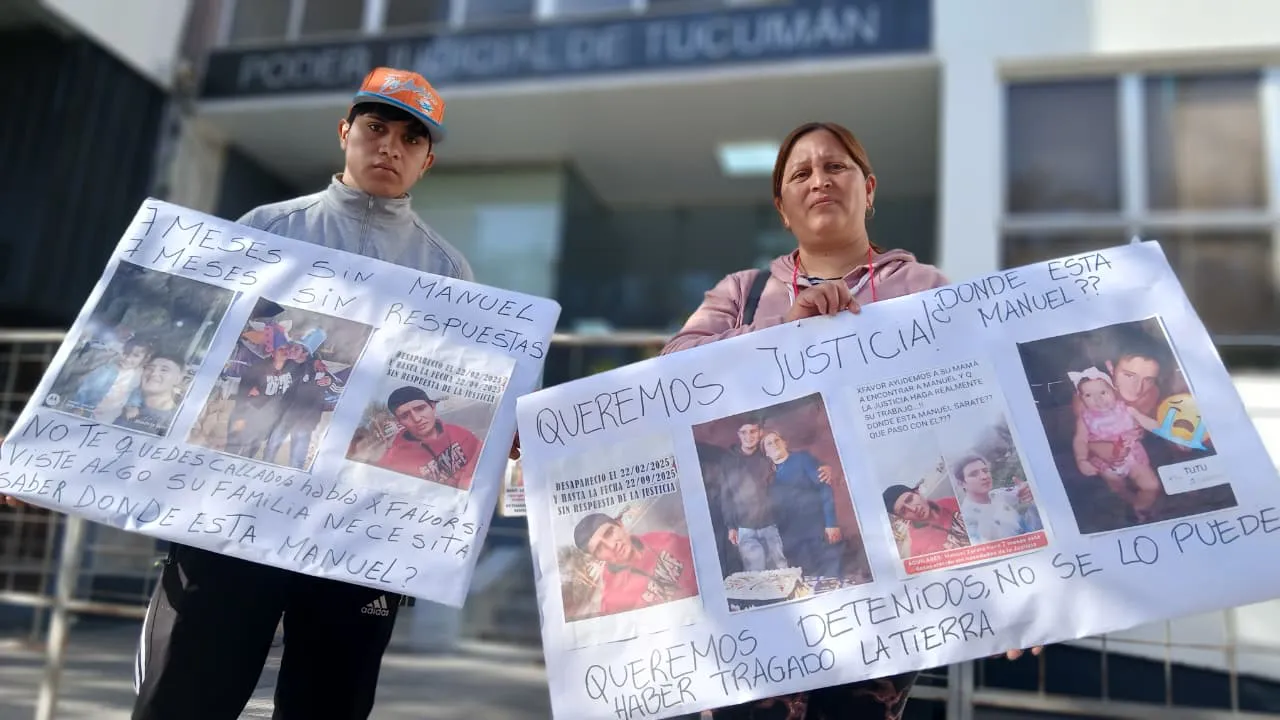 PODER JUDICIAL DE TUCUMÁN
7 MESES SIN MANUEL
7 MESES SIN RESPUESTAS
DESAPARECIO EL 22/02/2025
Y HASTA LA FECHA 22/09/2025
SIN RESPUESTA DE LA JUSTICIA
NO TE QUEDES CALLADO/A habla XFAVOR SI
VISTE ALGO SU FAMILIA NECESITA
SABER DONDE ESTA MANUEL?
adidas
QUEREMOS JUSTICIA!
¿DONDE ESTA
MANUEL??
DESAPARECIO EL 22/02/2025
Y HASTA LA FECHA 22/09/2025
SIN RESPUESTA DE LA JUSTICIA
XFAVOR AYUDEMOS A SU MAMA
A ENCONTRAR A MANUEL Y Q
LA JUSTICIA HAGA REALMENTE
SU TRABAJO...!!
DONDE ESTA MANUEL SARATE??
QUE PASO CON EL???
AGUILARES: Manuel Zarate lleva 7 meses
de la Justicia
TUTU
QUEREMOS DETENIDOS, NO SE LO PUEDE
HABER TRAGADO LA TIERRA